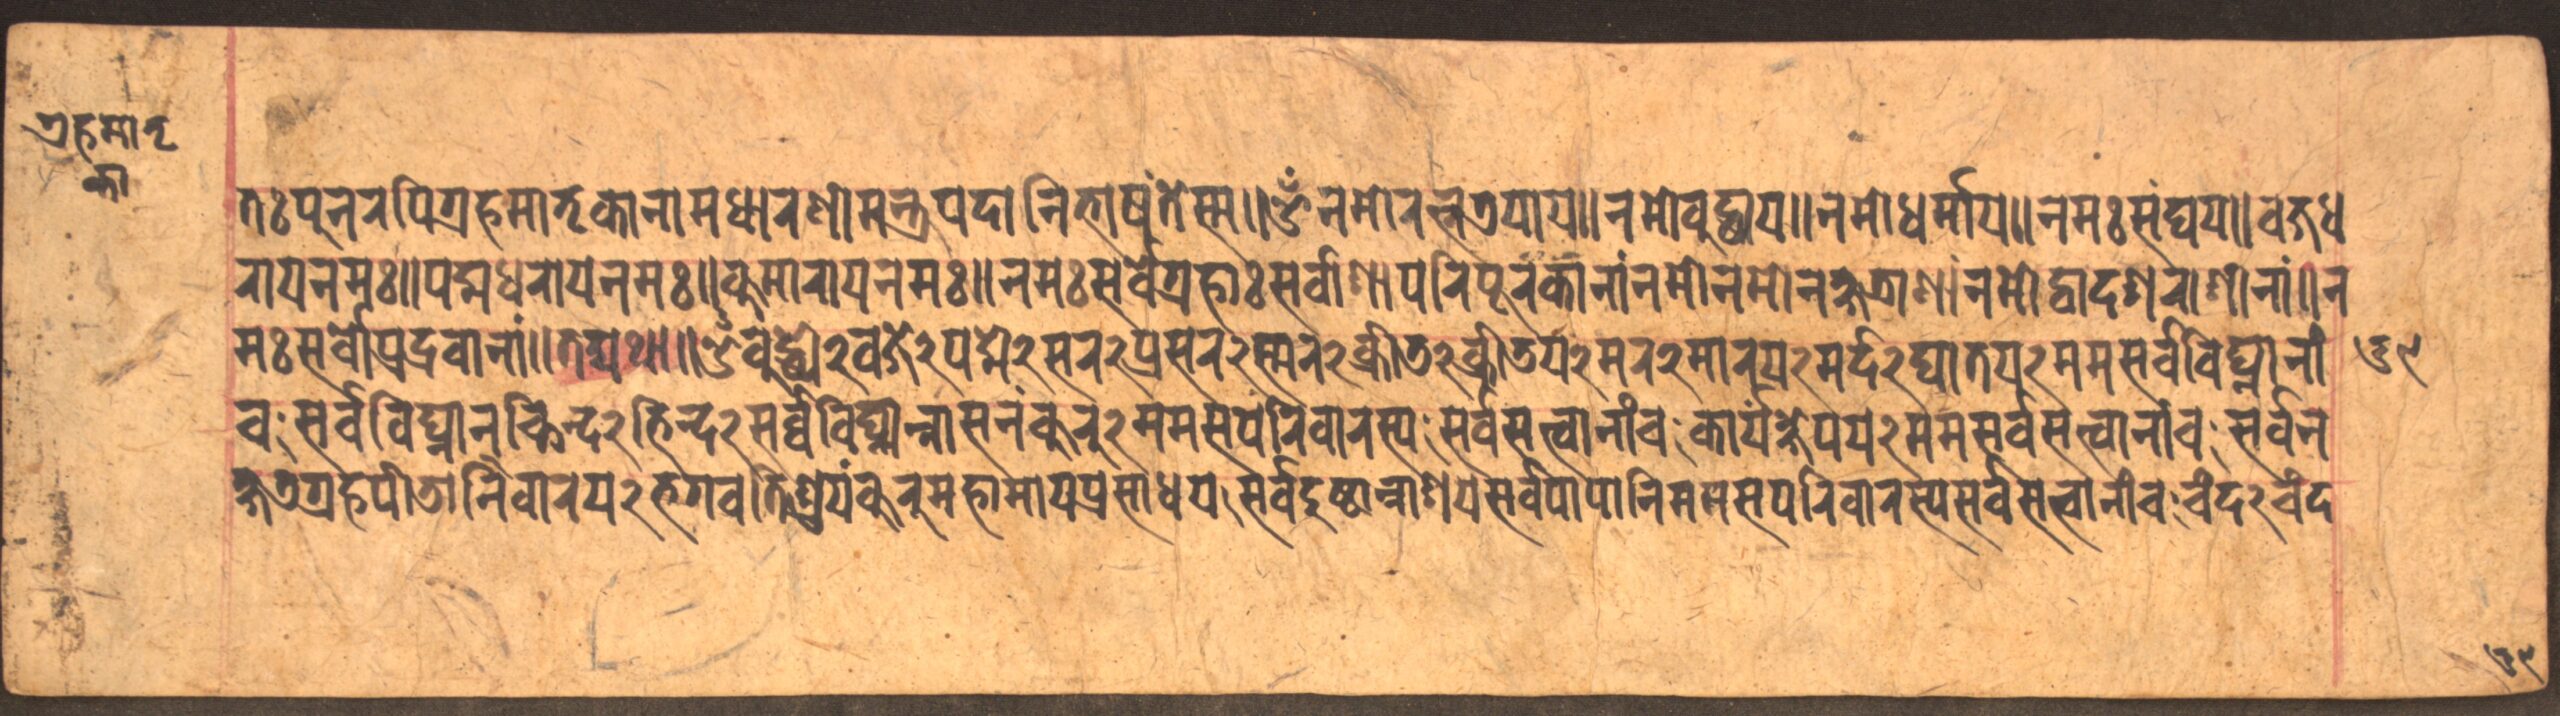 ग्रहमातृ
का
तः पुनरपिग्रहमातृकानामधारणीमन्त्रपदानिभाषंतेस्म॥ ॐ नमोरत्नत्रयाय॥ नमोबुद्धाय॥ नमोधर्माय॥ नमः संघय॥ वज्रध
रायनमः॥ पद्मधरायनमः॥ कुमारायनमः॥ नमः सर्वग्रहाः सर्वाशापरिपूरकानांनमोनमोनक्षत्राणांनमोद्वादशराशीनां॥ न
मः सर्वोप्रद्रवानां॥ तद्यथा॥ ॐ बुद्धे२वज्रे२पद्मे२सर२प्रसर२स्मर२क्रीड२क्रीडय२मर२मारय२मर्द२घातय२ममसर्वविघ्नानां
च सर्वविघ्नान्छिन्द२भिन्द२सर्वविघ्नान्नासनंकुरु२ममसपरिवारस्य सर्वसत्वानांच कार्यंक्षेपय२ममसर्वसत्वानांच सर्वन
क्षत्रग्रहपीडानिवारय२भगवतिश्रुयंकुरुमहामायप्रसाधय सर्वदुष्टान्नाशयसर्वपापानिममसपरिवारस्यसर्वसत्वानांच चंद२चंद